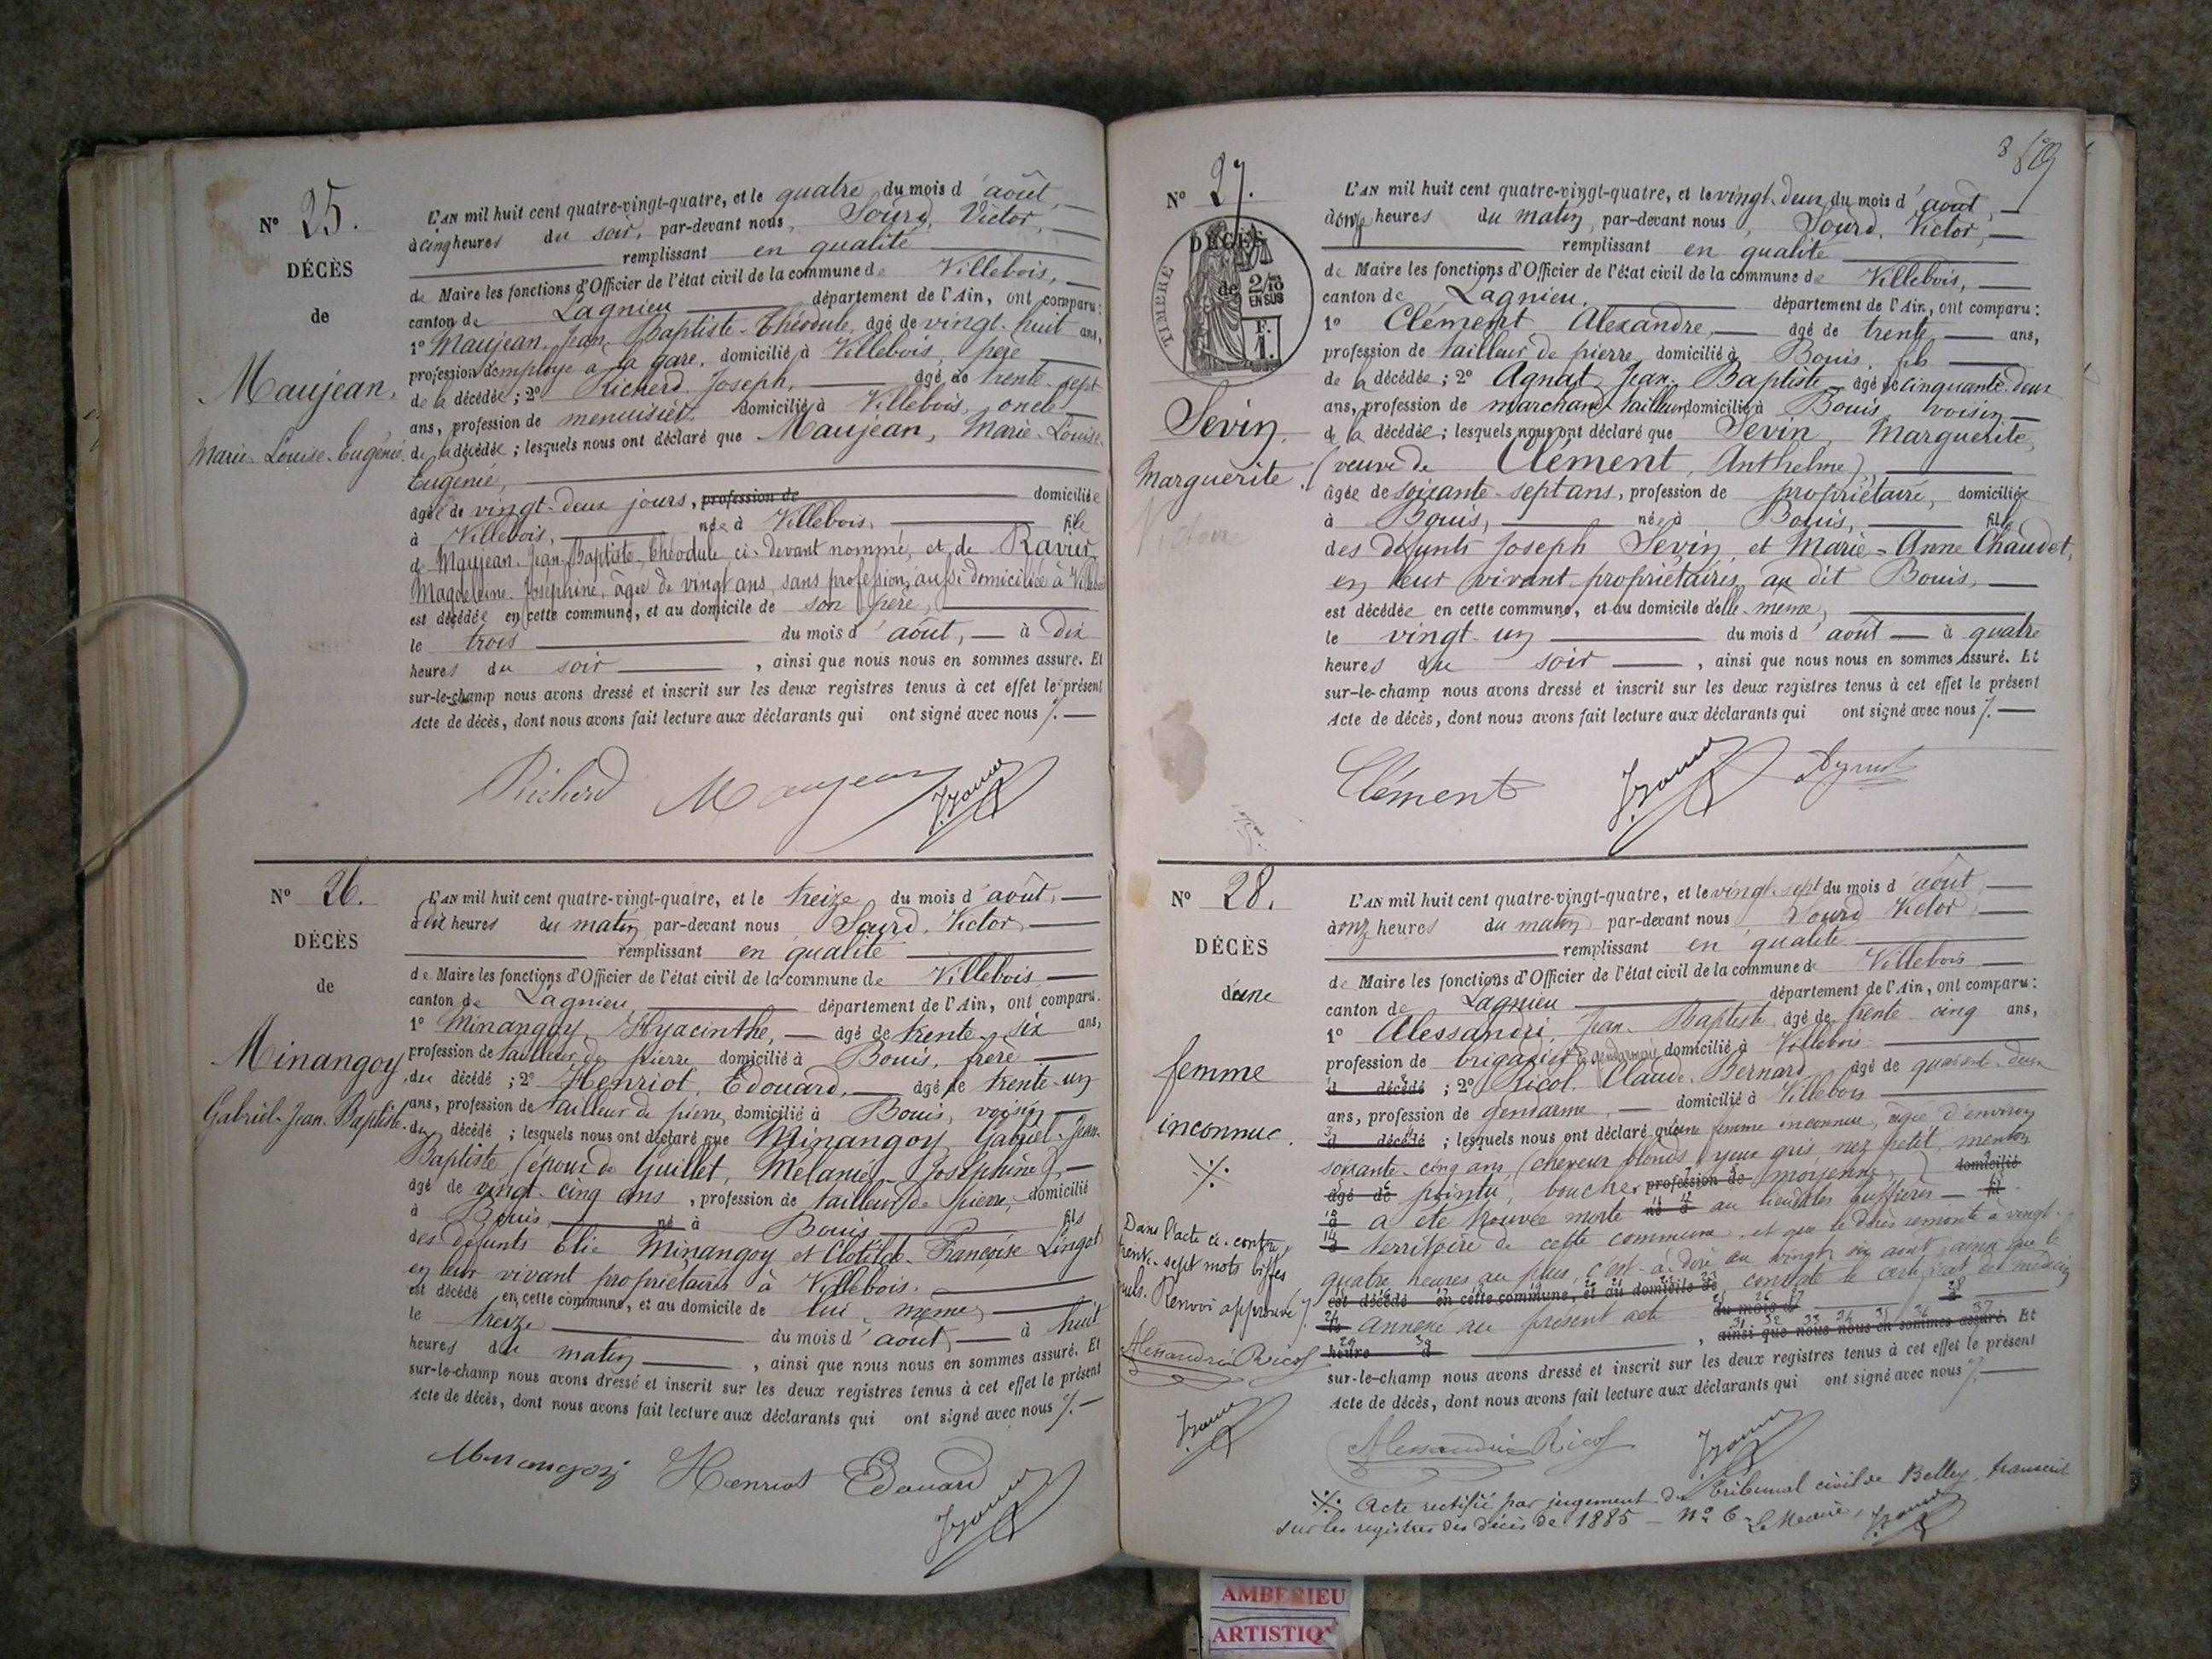 N° 25.
DÉCÈS
de
Maujean,
Marie-Louise-Eugénie.
L'AN mil huit cent quatre-vingt-quatre, et le quatre du mois d'août,
à cinq heures du soir, par-devant nous, Sourd, Victor,
remplissant en qualité
de Maire les fonctions d'Officier de l'état civil de la commune de Villebois,
canton de Lagnieu département de l'Ain, ont comparu:
1° Maujean, Jean-Baptiste-Théodule, âgé de vingt-huit ans,
profession d'employé à la gare, domicilié à Villebois, père
de la décédée; 2° Richerd, Joseph, âgé de trente-sept
ans, profession de menuisier domicilié à Villebois, oncle
de la décédée; lesquels nous ont déclaré que Maujean, Marie-Louise-
Eugénie,
âgée de vingt-deux jours, profession de domiciliée
à Villebois, née à Villebois, fille
de Maujean, Jean-Baptiste-Théodule, ci-devant nommé, et de Ravier
Magdeleine-Joséphine, âgée de vingt ans, sans profession, aussi domiciliée à Villebois
est décédée en cette commune, et au domicile de son père,
le trois du mois d'août, à dix
heures du soir, ainsi que nous nous en sommes assuré. Et
sur-le-champ nous avons dressé et inscrit sur les deux registres tenus à cet effet le présent
Acte de décès, dont nous avons fait lecture aux déclarants qui ont signé avec nous
Richerd Maujean
N° 26.
DÉCÈS
de
Minangoy
Gabriel-Jean-Baptiste.
L'AN mil huit cent quatre-vingt-quatre, et le treize du mois d'août,
à dix heures du matin par-devant nous Sourd, Victor
remplissant en qualité
de Maire les fonctions d'Officier de l'état civil de la commune de Villebois
canton de Lagnieu département de l'Ain, ont comparu.
1° Minangoy, Hyacinthe, âgé de trente-six ans,
profession de tailleur de pierre domicilié à Bouis, frère
du décédé; 2° Henriot, Edouard, âgé de trente-un
ans, profession de tailleur de pierre, domicilié à Bouis, voisin
du décédé; lesquels nous ont déclaré que Minangoy, Gabriel-Jean-
Baptiste (époux de Guillet, Mélanie-Joséphine),
âgé de vingt-cinq ans, profession de tailleur de pierre, domicilié
à Bouis, né à Bouis, fils
des défunts Elie Minangoy et Clotilde-Françoise Lingot
en leur vivant propriétaires à Villebois.
est décédé en cette commune, et au domicile de lui-même,
le treize du mois d'août, à huit
heures du matin, ainsi que nous nous en sommes assuré. Et
sur-le-champ nous avons dressé et inscrit sur les deux registres tenus à cet effet le présent
Acte de décès, dont nous avons fait lecture aux déclarants qui ont signé avec nous
Minangoy Henriot Edouard
N° 27.
TIMBRE
DÉCÈS
de
2/10
EN SUS
F.
1.
Sevin,
Marguerite
Victoire
L'AN mil huit cent quatre-vingt-quatre, et le vingt-deux du mois d'août
à onze heures du matin, par-devant nous, Sourd, Victor,
remplissant en qualité
de Maire les fonctions d'Officier de l'état civil de la commune de Villebois,
canton de Lagnieu, département de l'Ain, ont comparu:
1° Clément, Alexandre, âgé de trente ans,
profession de tailleur de pierre, domicilié à Bouis, fils
de la décédée; 2° Agnat, Jean-Baptiste, âgé de cinquante-deux
ans, profession de marchand-tailleur, domicilié à Bouis, voisin
de la décédée; lesquels nous ont déclaré que Sevin, Marguerite,
(veuve de Clément, Anthelme),
âgée de soixante-sept ans, profession de propriétaire, domiciliée
à Bouis, née à Bouis, fille
des défunts Joseph Sevin, et Marie-Anne Chaudet,
en leur vivant propriétaires au dit Bouis,
est décédée en cette commune, et au domicile d'elle-même,
le vingt-un du mois d'août à quatre
heures du soir, ainsi que nous nous en sommes assuré. Et
sur-le-champ nous avons dressé et inscrit sur les deux registres tenus à cet effet le présent
Acte de décès, dont nous avons fait lecture aux déclarants qui ont signé avec nous
Clément
N° 28.
DÉCÈS
d'une
femme
inconnue.
L'AN mil huit cent quatre-vingt-quatre, et le vingt-sept du mois d'août
à onz heures du matin par-devant nous Sourd Victor,
remplissant en qualité
de Maire les fonctions d'Officier de l'état civil de la commune de Villebois
canton de Lagnieu département de l'Ain, ont comparu:
1° Alessandri, Jean-Baptiste, âgé de trente-cinq ans,
profession de brigadier de gendarmerie domicilié à Villebois
d décédé; 2° Ricol, Claude-Bernard, âgé de quarante-deux
ans, profession de gendarme, domicilié à Villebois
d décédé; lesquels nous ont déclaré qu'une femme inconnue, âgée d'environ
soixante-cinq ans (cheveux blonds, yeux gris, nez petit, menton
âgé de pointu, bouche profession de moyenne,) domicilié
à a été trouvée morte né à au lieu dit les Buffières fil
d territoire de cette commune, et que le décès remonte à vingt-
quatre heures au plus, c'est-à-dire au vingt-six août, ainsi que le
est décédé en cette commune, et au domicile de constate le certificat du médecin
le annexé au présent acte du mois d à
heure d, ainsi que nous nous en sommes assuré. Et
sur-le-champ nous avons dressé et inscrit sur les deux registres tenus à cet effet le présent
Acte de décès, dont nous avons fait lecture aux déclarants qui ont signé avec nous
Dans l'acte ci-contre,
trente-sept mots biffés
nuls. Renvoi approuvé
Alessandri Ricol
Alessandri Ricol
Acte rectifié par jugement du Tribunal civil de Belley, transcrit
sur les registres des décès de 1885 - N° 6 - Le Maire,
AMBERIEU
ARTISTIQ